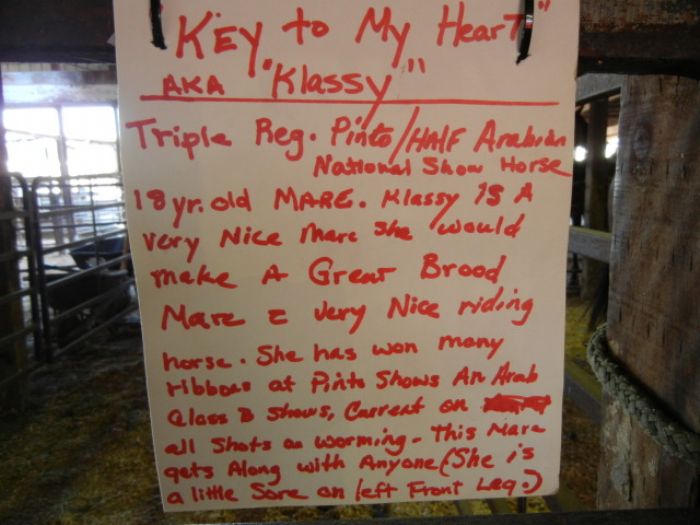 "Key to My Heart"
AKA "Klassy"
Triple Reg. Pinto/HALF Arabian
National Show Horse
18 yr. old MARE. Klassy IS A
very Nice mare she would
make A Great Brood
Mare & very Nice riding
horse. She has won many
ribbons at Pinto Shows An Arab
Class B shows, Current on
all shots an worming. This Mare
gets Along with Anyone (She is
a little Sore on left Front Leg.)